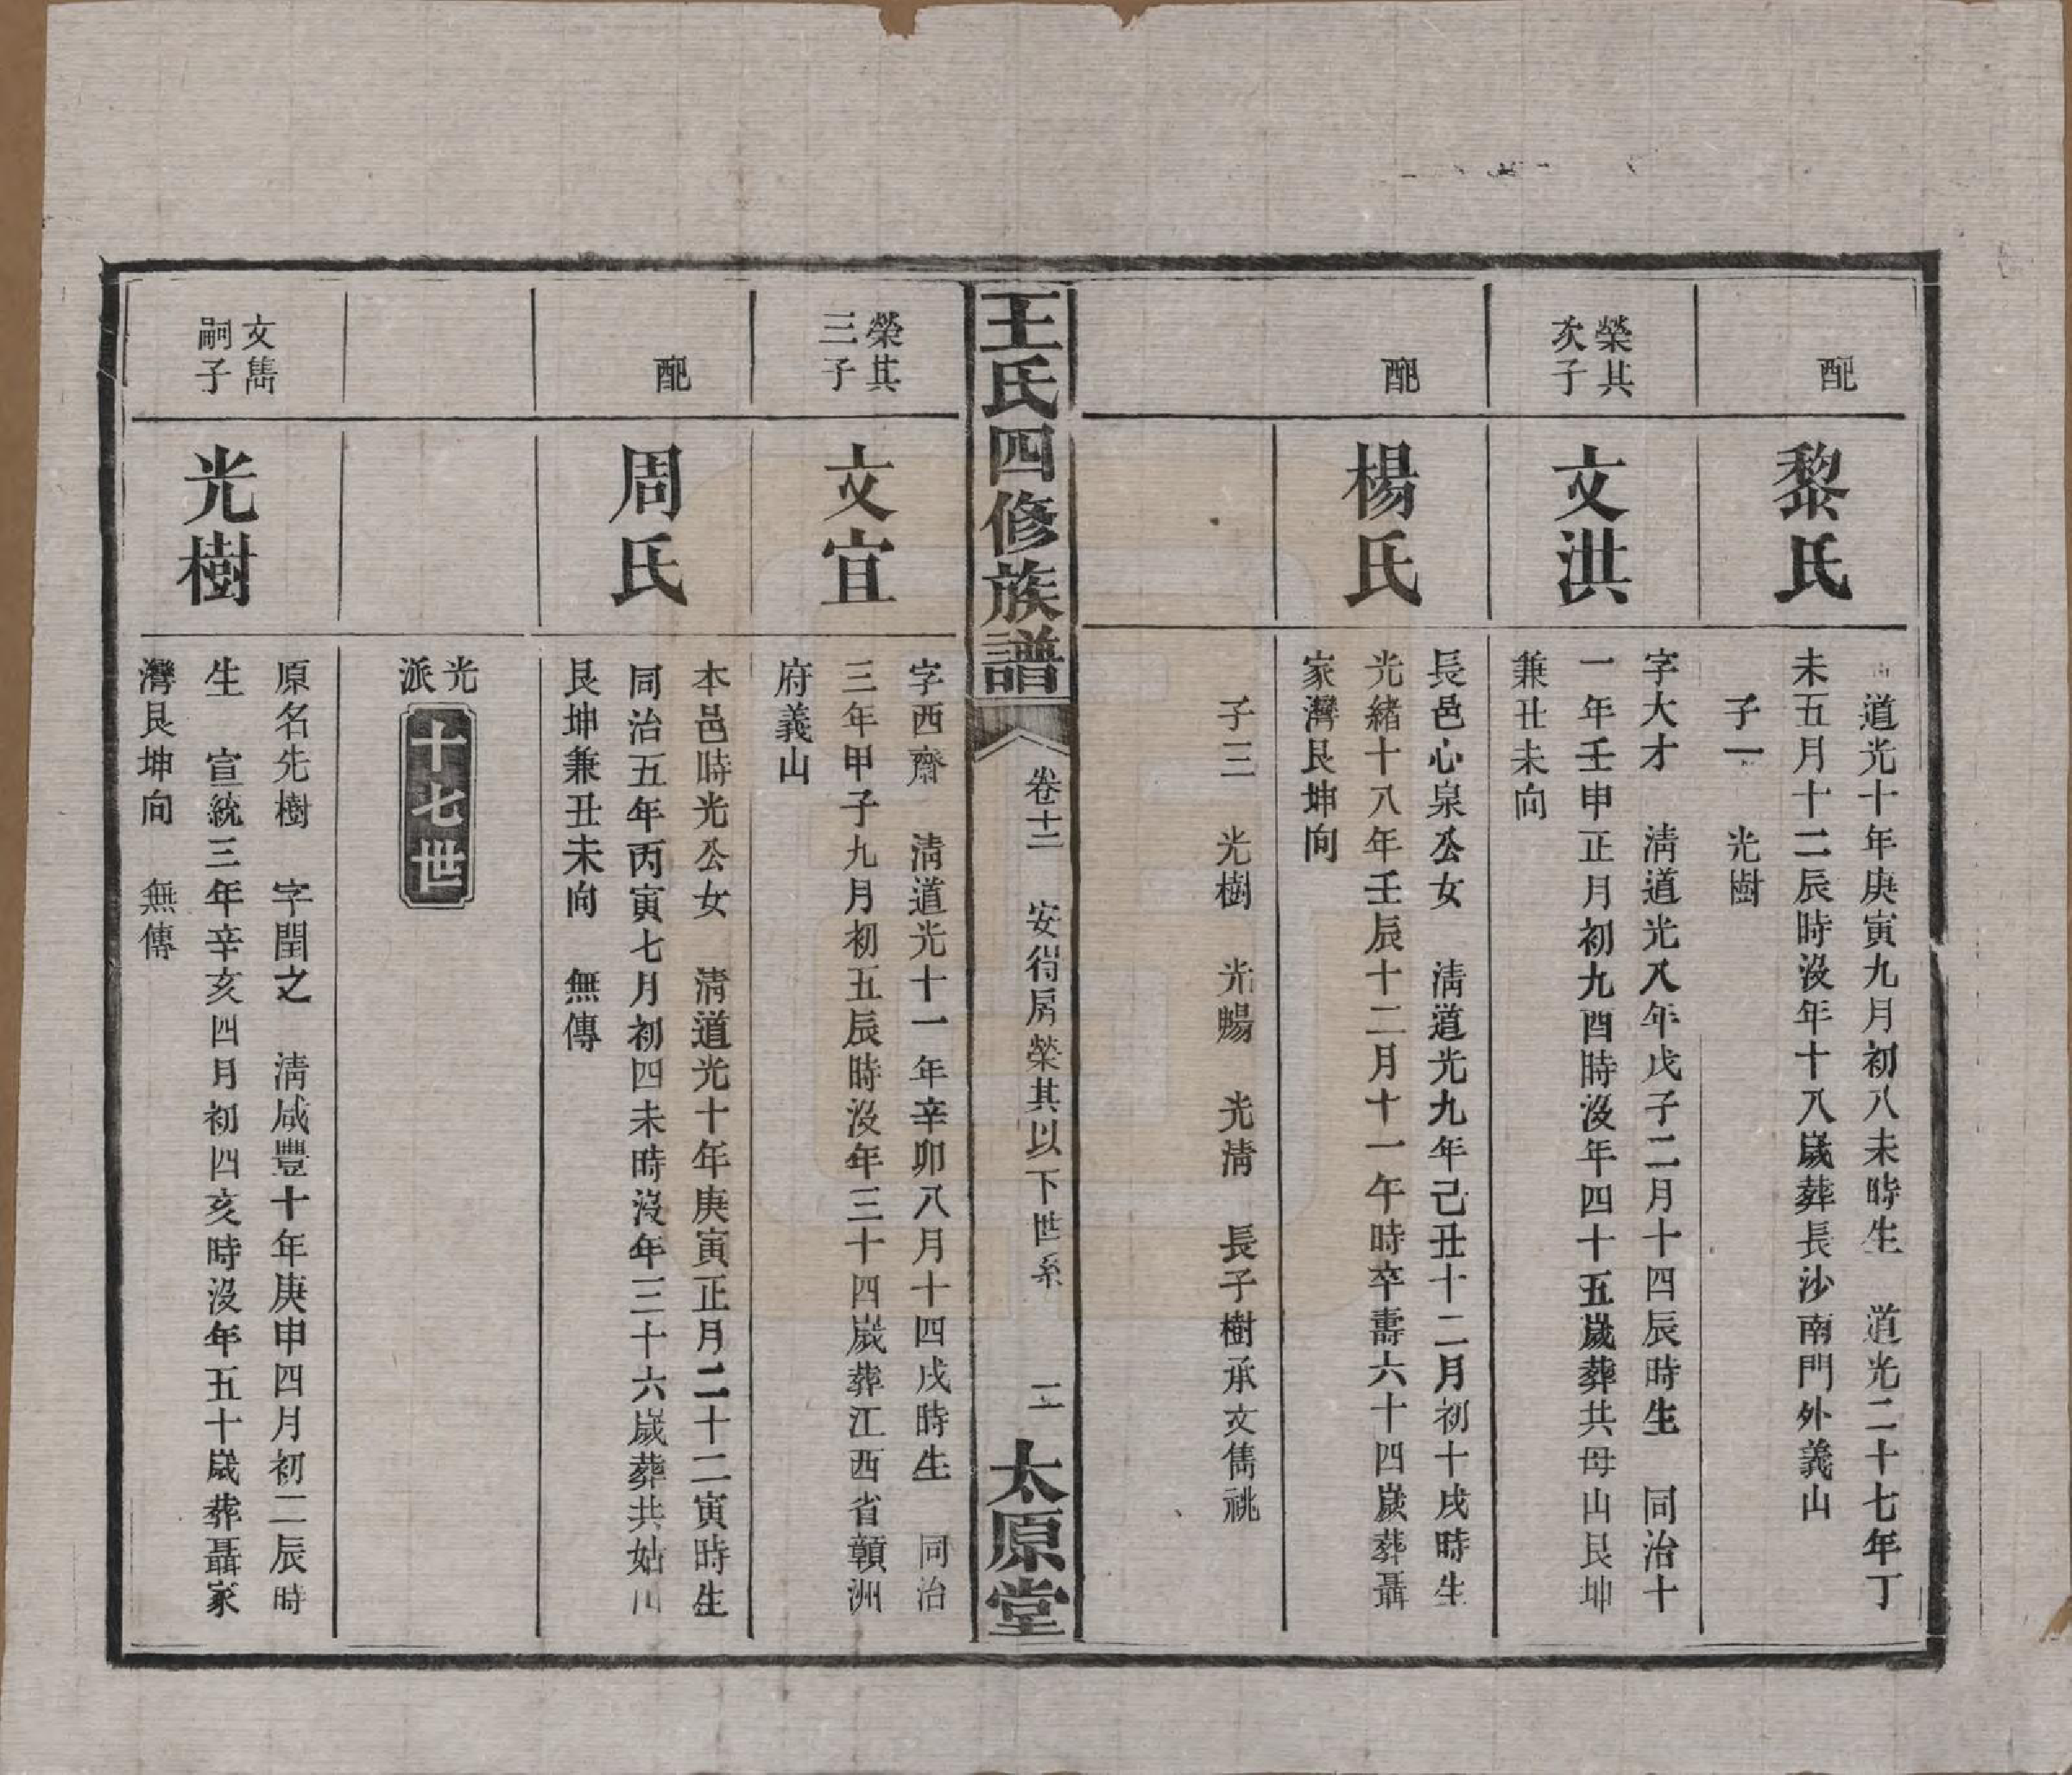 配
黎氏
道光十年庚寅九月初八未時生　道光二十七年丁
未五月十二辰時沒年十八歲葬長沙南門外義山
子一　光樹
榮其
次子
文洪
字大才　淸道光八年戊子二月十四辰時生　同治十
一年壬申正月初九酉時沒年四十五歲葬共母山艮坤
兼丑未向
配
楊氏
長邑心泉公女　淸道光九年己丑十二月初十戌時生
光緒十八年壬辰十二月十一午時卒壽六十四歲葬聶
家灣艮坤向
子三　光樹　光暘　光淸　長子樹承文雋祧
王氏四修族譜
卷十二
安得房榮其以下世系
二
太原堂
榮其
三子
文宜
字西齋　淸道光十一年辛卯八月十四戌時生　同治
三年甲子九月初五辰時沒年三十四歲葬江西省贛洲
府義山
配
周氏
本邑時光公女　淸道光十年庚寅正月二十二寅時生
同治五年丙寅七月初四未時沒年三十六歲葬共姑山
艮坤兼丑未向　無傳
光
派
十七世
文雋
嗣子
光樹
原名先樹　字閏之　淸咸豐十年庚申四月初二辰時
生　宣統三年辛亥四月初四亥時沒年五十歲葬聶家
灣艮坤向　無傳